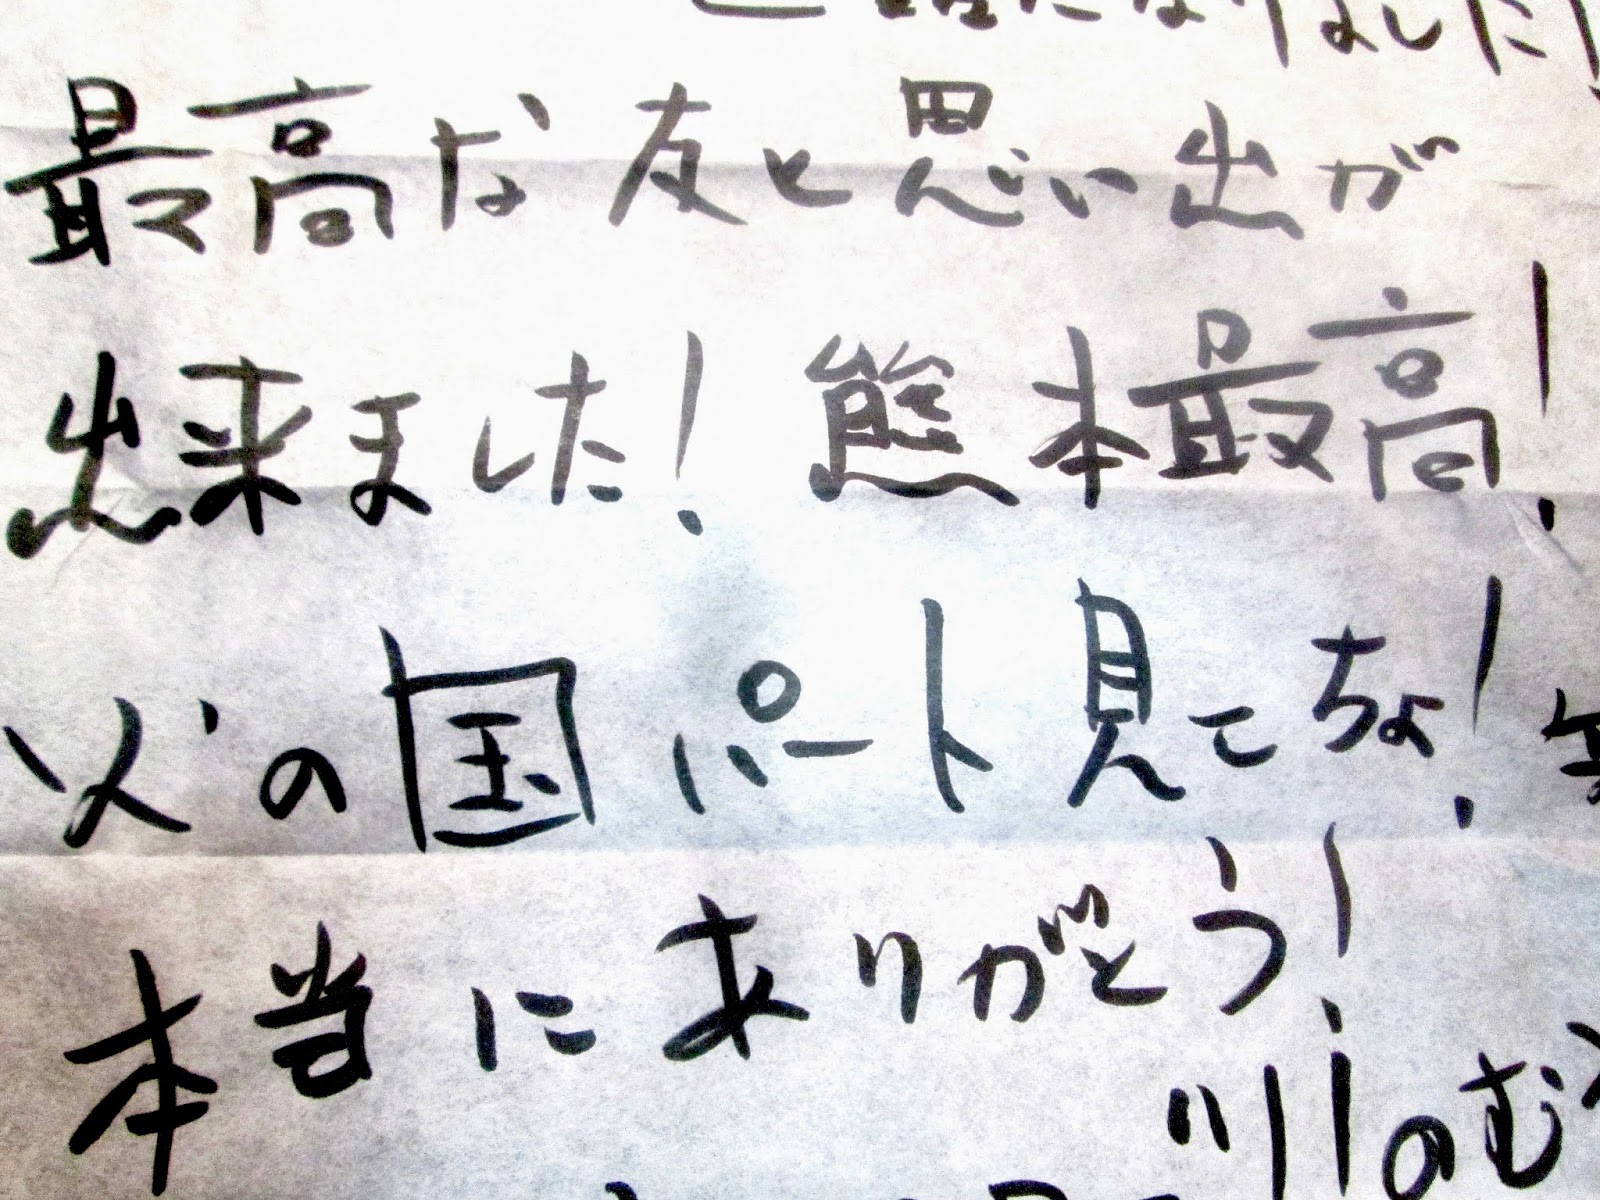 になりました!
最高な友と思い出が
出来ました! 熊本最高!
父の国パート見てちょ!
本当にありがとう!
川のむ